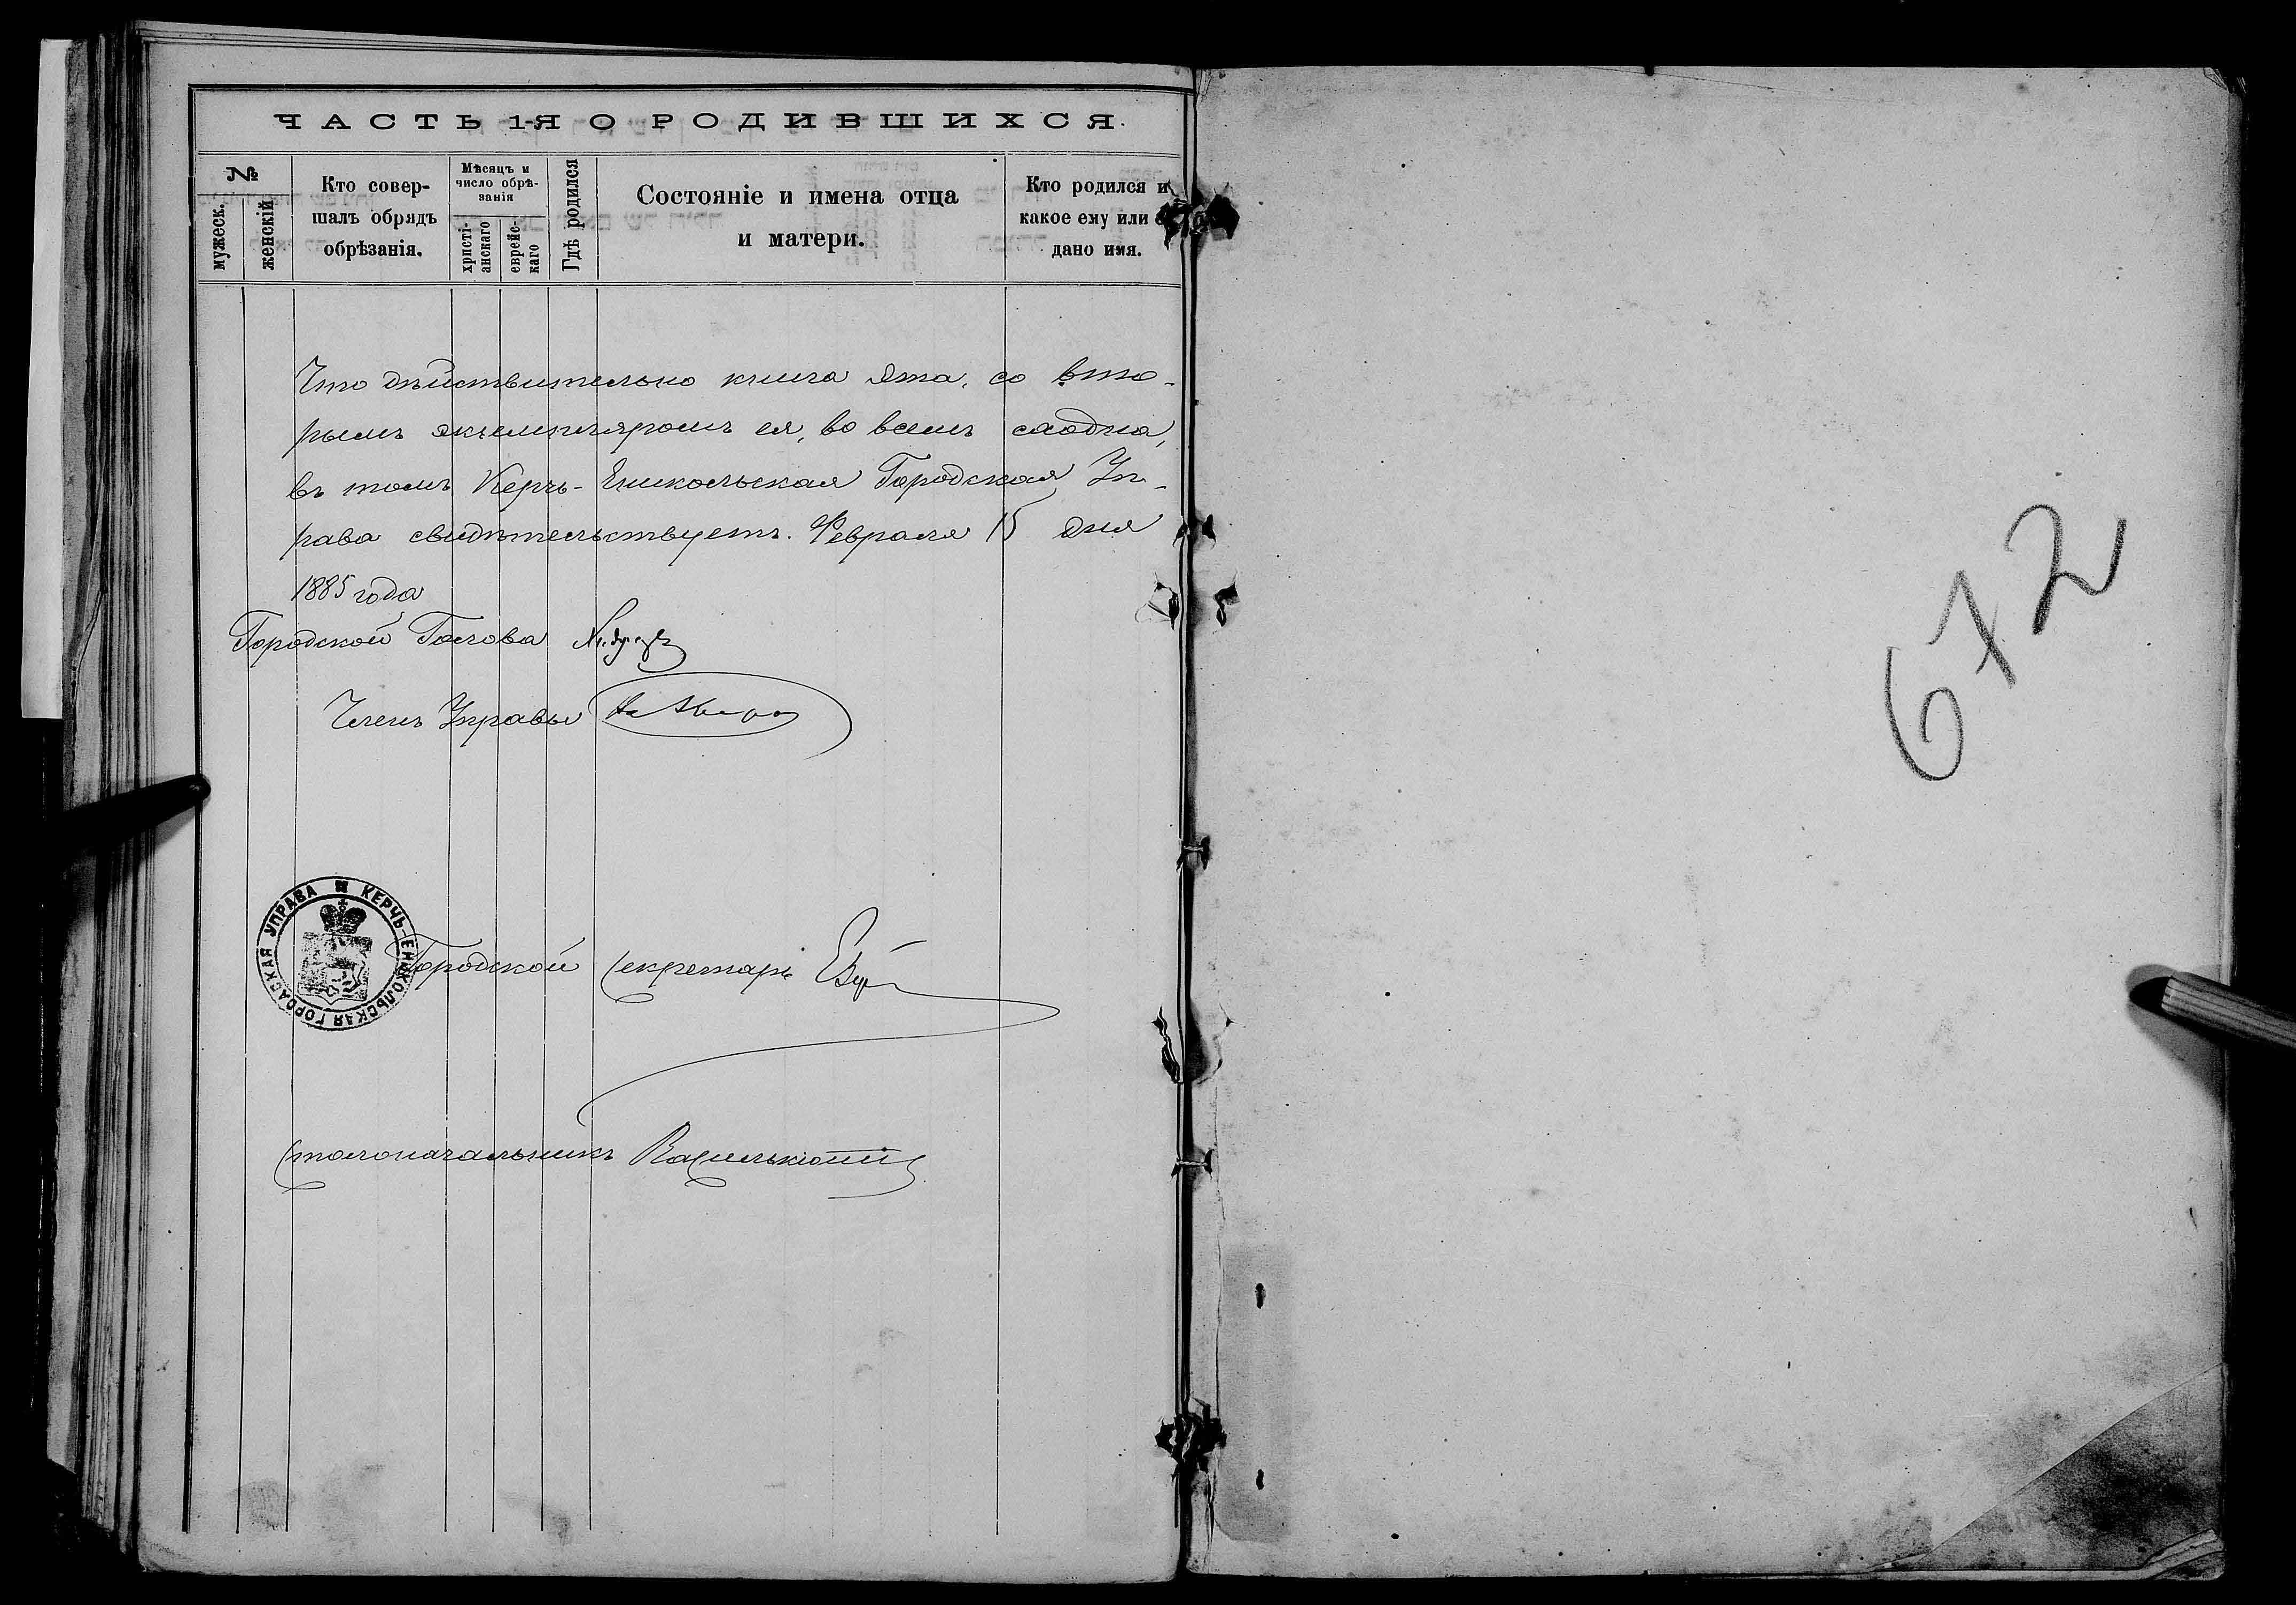 ЧАСТЬ 1-Я О РОДИВШИХСЯ.
№
мужеск.
женскій
Кто совер-
шалъ обрядъ
обрѣзанія.
Мѣсяцъ и
число обрѣ-
занія
христі-
анскаго
еврейс-
каго
Гдѣ родился
Состояніе и имена отца
и матери.
Кто родился и
какое ему или
дано имя.
Что дѣйствительно книга эта, со вто-
рымъ экземпляромъ ея, во всемъ сходна,
въ томъ Керчь-Еникольская Городская Уп-
рава свидѣтельствуетъ. Февраля 15 дня
1885 года
Городской Голова
Членъ Управы
УПРАВА КЕРЧЬ-ЕНИКОЛЬСКАЯ ГОРОДСКАЯ
Городской Секретарь
Столоначальникъ
672